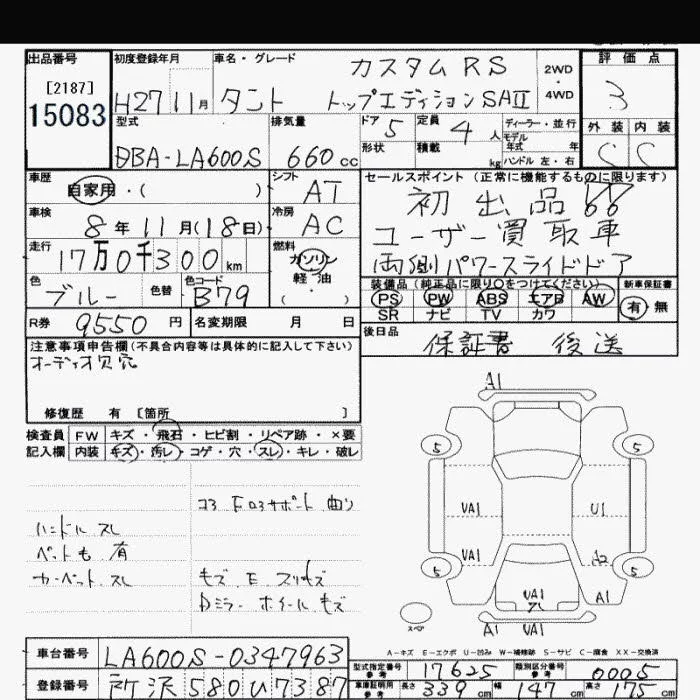 出品番号
[2187]
15083
初度登録年月
H27 11月
車名・グレード
カスタム RS
タント トップエディションSAⅡ
2WD
・
4WD
評価点
3
型式
DBA-LA600S
排気量
660 cc
ドア 5
形状
定員 4 人
積載 kg
ディーラー・並行
モデル
年式 年
ハンドル 左・右
外装 内装
C C
車歴
自家用・( )
シフト
AT
車検
8年11月(18日)
冷房
AC
走行
17万0千300km
燃料
ガソリン
軽油
( )
色
ブルー
色替
色コード
B79
R券 9550 円
名変期限 月 日
セールスポイント(正常に機能するものに限ります)
初出品
ユーザー買取車
両側パワースライドドア
装備品(純正品に限り○をつけてください)
PS PW ABS エアB AW
SR ナビ TV カワ
新車保証書
有・無
後日品
保証書 後送
注意事項申告欄(不具合内容等は具体的に記入して下さい)
オーディオ欠穴
修復歴 有 [箇所 ]
検査員
記入欄
FW キズ・飛石・ヒビ割・リペア跡・×要
内装 キズ・汚レ・コゲ・穴・スレ・キレ・破レ
コ3 F ロ3サポート 曲り
ハンドル スレ
ペット毛 有
カーペット スレ
キズ E スリキズ
Dミラー ホイール キズ
A1
5 5
VA1 U1
VA1 A2
5 5
VA1
A1
スペア
A1 VA1
A-キズ E-エクボ U-凹み W-補修跡 S-サビ C-腐食 XX-交換済
車台番号
LA600S-0347963
登録番号
所沢 580 い 7387
型式指定番号
参考
17625
類別区分番号
参考
0005
車庫証明用
参考
長さ 339 cm 幅 147 cm 高さ 175 cm